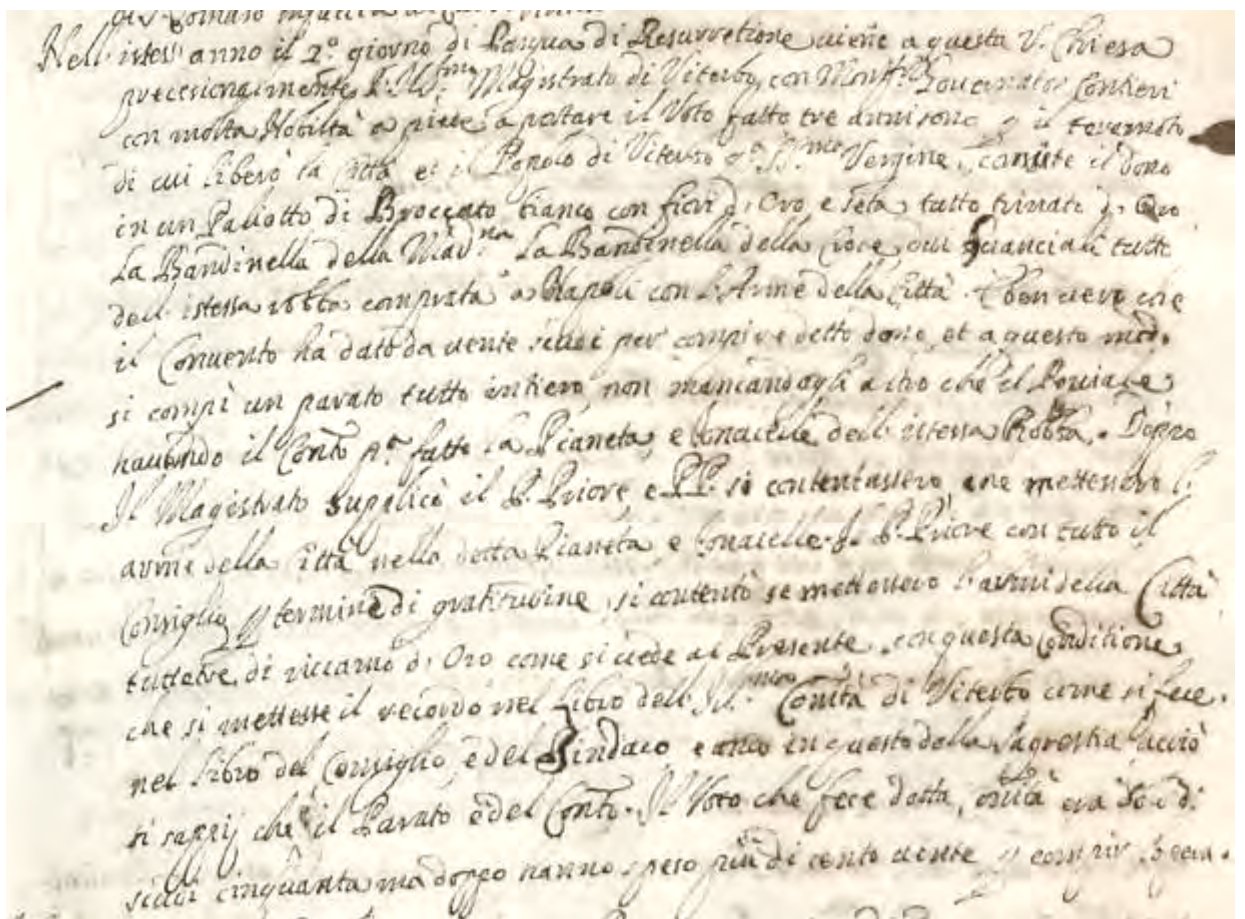 Nell' istess' anno il 2.º giorno di Pasqua di Resurretione viene a questa V. Chiesa
precesionalmente l'Ill.mo Magistrato di Viterbo, con Mons.r Governatore Contieri
con molta Nobiltà a piede a portare il Voto fatto tre anni sono p il terremoto
di cui liberò la Città et il Popolo di Viterbo q.a SS.ma Vergine, il dono
in un Paliotto di Broccato bianco con fiori d'Oro e seta tutto trinati d'Oro
La Bandinella della Mad.na La Bandinella della Croce dui Guanciali tutti
dell' istessa robba comprata a Napoli con l'Arme della Città. È ben vero che
il Convento ha dato da vente scudi per compire detto dono, et a questo modo
si compì un parato tutto intiero non mancandogli altro che il Piviale
havendo il Conto p.a fatto la Pianeta, e tonacelle dell' istessa Robba. Doppo
Il Magistrato supplicò il P. Priore, e PP. si contentassero, che mettessero l'
armi della Città nella detta Pianeta e tonacelle. Il P. Priore con tutto il
Consiglio p termine di gratitudine, si contentò se mettessero l'armi della Città
tutte tre, di riccamo d'Oro come si vede al Presente, con questa Conditione
che si mettesse il recordo nel Libro dell' Ill.ma Comità di Viterbo come si fece
nel Libro del Consiglio, e del Sindaco, e anco in questo della Sagrestia, acciò
si sappij che il Parato è del Conto. Il Voto che fece detta Comità era solo di
scudi cinquanta ma doppo hanno speso più di cento vente p compir